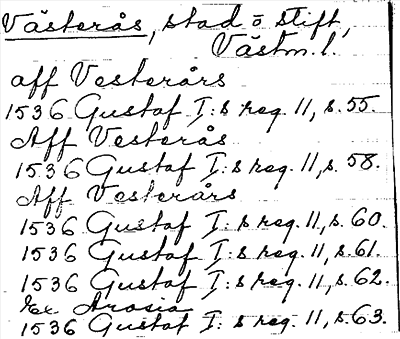 Västerås, stad o stift,
Västm. l.
aff Vesterårs
1536 Gustaf I:s reg. 11, s. 55.
Aff Vesterås
1536 Gustaf I:s reg. 11, s. 58.
Aff Vesterårs
1536 Gustaf I:s reg. 11, s. 60.
1536 Gustaf I:s reg. 11, s. 61.
1536 Gustaf I:s reg. 11, s. 62.
Ex Arosia
1536 Gustaf I:s reg. 11, s. 63.